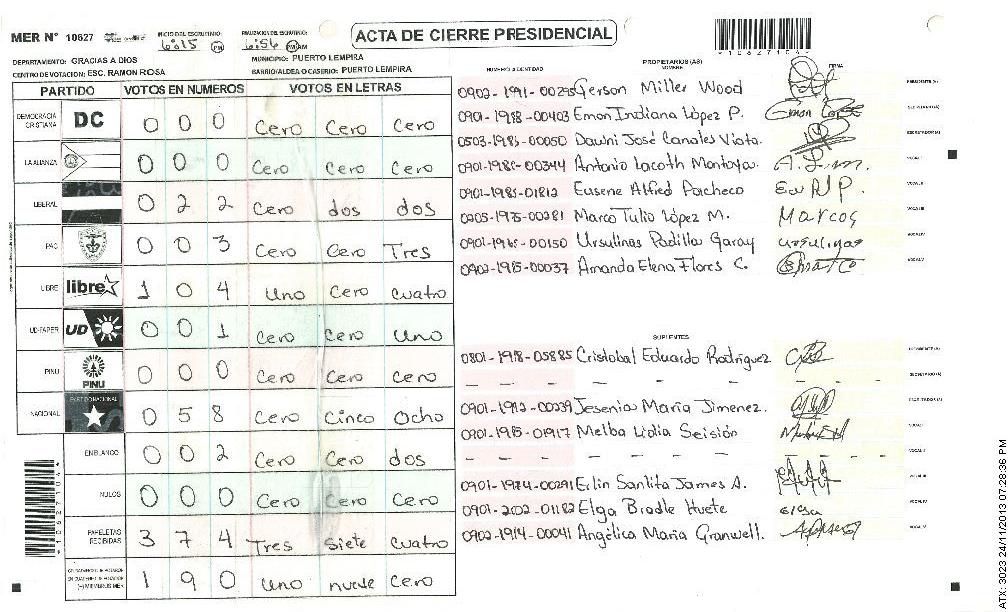 MER N° 10627
INICIO DEL ESCRUTINIO:
6:15 PM
FINALIZACION DEL ESCRUTINIO:
6:56 PM AM
ACTA DE CIERRE PRESIDENCIAL
*10627104*
DEPARTAMENTO: GRACIAS A DIOS
MUNICIPIO: PUERTO LEMPIRA
CENTRO DE VOTACION: ESC. RAMON ROSA
BARRIO/ALDEA O CASERIO: PUERTO LEMPIRA
PARTIDO VOTOS EN NUMEROS VOTOS EN LETRAS
DEMOCRACIA CRISTIANA DC 0 0 0 Cero Cero Cero
LA ALIANZA 0 0 0 Cero Cero Cero
LIBERAL 0 2 2 Cero dos dos
PAC 0 0 3 Cero Cero Tres
LIBRE libre 1 0 4 Uno Cero cuatro
UD-FAPER UD 0 0 1 Cero Cero Uno
PINU PINU 0 0 0 Cero Cero Cero
NACIONAL PARTIDO NACIONAL 0 5 8 Cero Cinco Ocho
EN BLANCO 0 0 2 Cero Cero dos
NULOS 0 0 0 Cero Cero Cero
PAPELETAS RECIBIDAS 3 7 4 Tres siete cuatro
(+) MIEMBROS MER 1 9 0 uno nueve cero
*10627104*
NUMERO IDENTIDAD PROPIETARIOS (AS) NOMBRE FIRMA
0902-1991-00295 Gerson Miller Wood PRESIDENTE (A)
0901-1988-00403 Emon Indiana López P. SECRETARIO (A)
0503-1985-00050 Dawni José Canales ESCRUTADOR (A)
0901-1986-00344 Antonio Lacoth Montoya. A. L. m. VOCAL I
0901-1985-01812 Eusene Alfred Pacheco VOCAL II
0205-1975-00281 Marco Tulio López M. Marcos VOCAL III
0901-1965-00150 Ursulinas Padilla Garay VOCAL IV
0902-1985-00037 Amanda Elena Flores C. VOCAL V
SUPLENTES
0801-1978-05885 Cristobal Eduardo Rodriguez PRESIDENTE (A)
SECRETARIO (A)
0901-1982-00239 Jesenia Maria Jimenez. ESCRUTADOR (A)
0901-1985-01917 Melba Lidia Seisión VOCAL I
VOCAL II
0901-1974-00291 Erlin Santita James A. VOCAL III
Elga Brodle Huete elga VOCAL IV
0902-1984-00041 Angélica Maria Granwell. VOCAL V
ATX: 3023 24/11/2013 07:28:36 PM